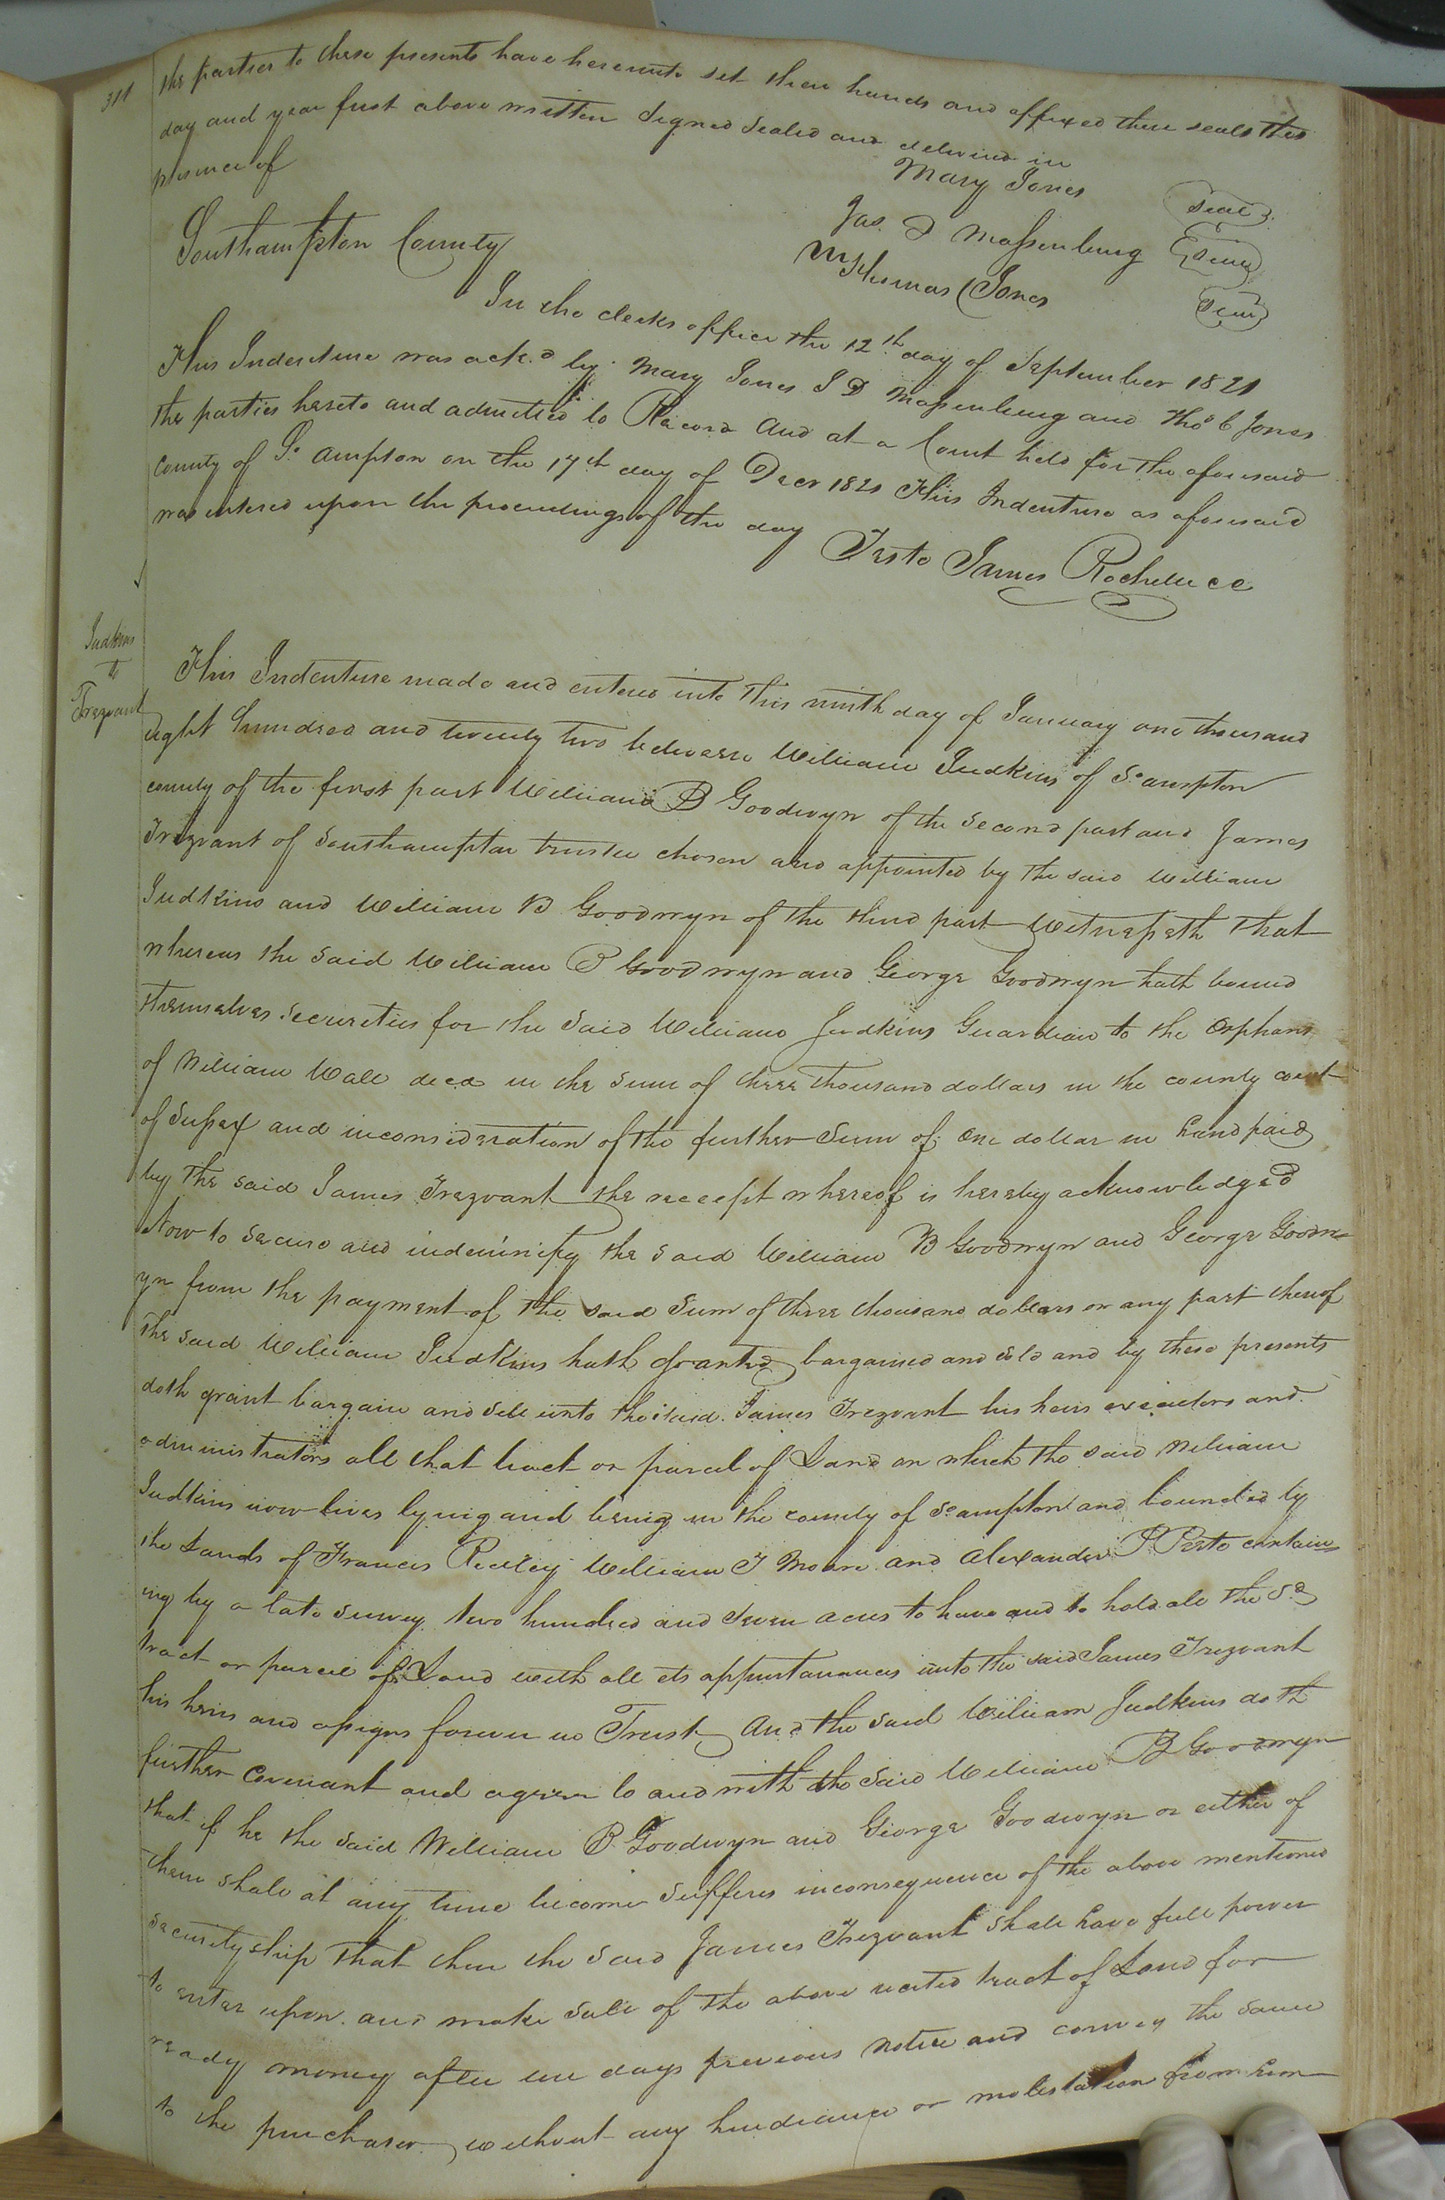 311
the parties to these presents have hereunto set their hands and affixed their seals this
day and year first above written Signed Sealed and delivered in
presence of
Mary Jones Seal
Jas. D Massenburg Seal
Thomas C Jones Seal
Southampton County
In the clerks office the 12th day of September 1821
This Indenture was ackd by Mary Jones J D Massenburg and Thos C Jones
the parties hereto and admitted to Record And at a Court held for the aforesaid
County of So ampton on the 17th day of Decr 1821 This Indenture as aforesaid
was entered upon the proceedings of the day
Teste James Rochelle cc
Judkins
to
Trezvant
This Indenture made and entered into this ninth day of January one thousand
eight hundred and twenty two between William Judkins of So ampton
county of the first part William B Goodwyn of the Second part and James
Trezvant of Southampton trustee chosen and appointed by the said William
Judkins and William B Goodwyn of the third part Witnesseth that
whereas the said William B Goodwyn and George Goodwyn hath bound
themselves Securities for the said William Judkins Guardian to the Orphans
of William Wall decd in the sum of three thousand dollars in the county court
of Sussex and inconsideration of the further Sum of one dollar in hand paid
by the said James Trezvant the receept whereof is hereby acknowledged
Now to secure and indemnify the said William B Goodwyn and George Goodw
yn from the payment of the said Sum of three thousand dollars or any part thereof
the said William Judkins hath granted bargained and sold and by these presents
doth grant bargain and sell unto the said James Trezvant his heirs executors and
administrators all that tract or parcel of Land on which the said William
Judkins now lives lying and being in the county of So ampton and bounded by
the Lands of Francis Ridley William T Moore and Alexander P Peete contain
ing by a late survey two hundred and seven acres to have and to hold all the sd
tract or parcel of Land with all its appurtanances unto the said James Trezvant
his heirs and assigns forever in Trust And the said William Judkins doth
further Covenant and agree to and with the said William B Goodwyn
that if he the said William B Goodwyn and George Goodwyn or either of
them shall at any time become Suffers inconsequence of the above mentioned
securityship that then the said James Trezvant shall have full power
to enter upon and make sale of the above recited tract of Land for
ready money after ten days previous notice and convey the same
to the purchaser without any hindrance or molestation from him